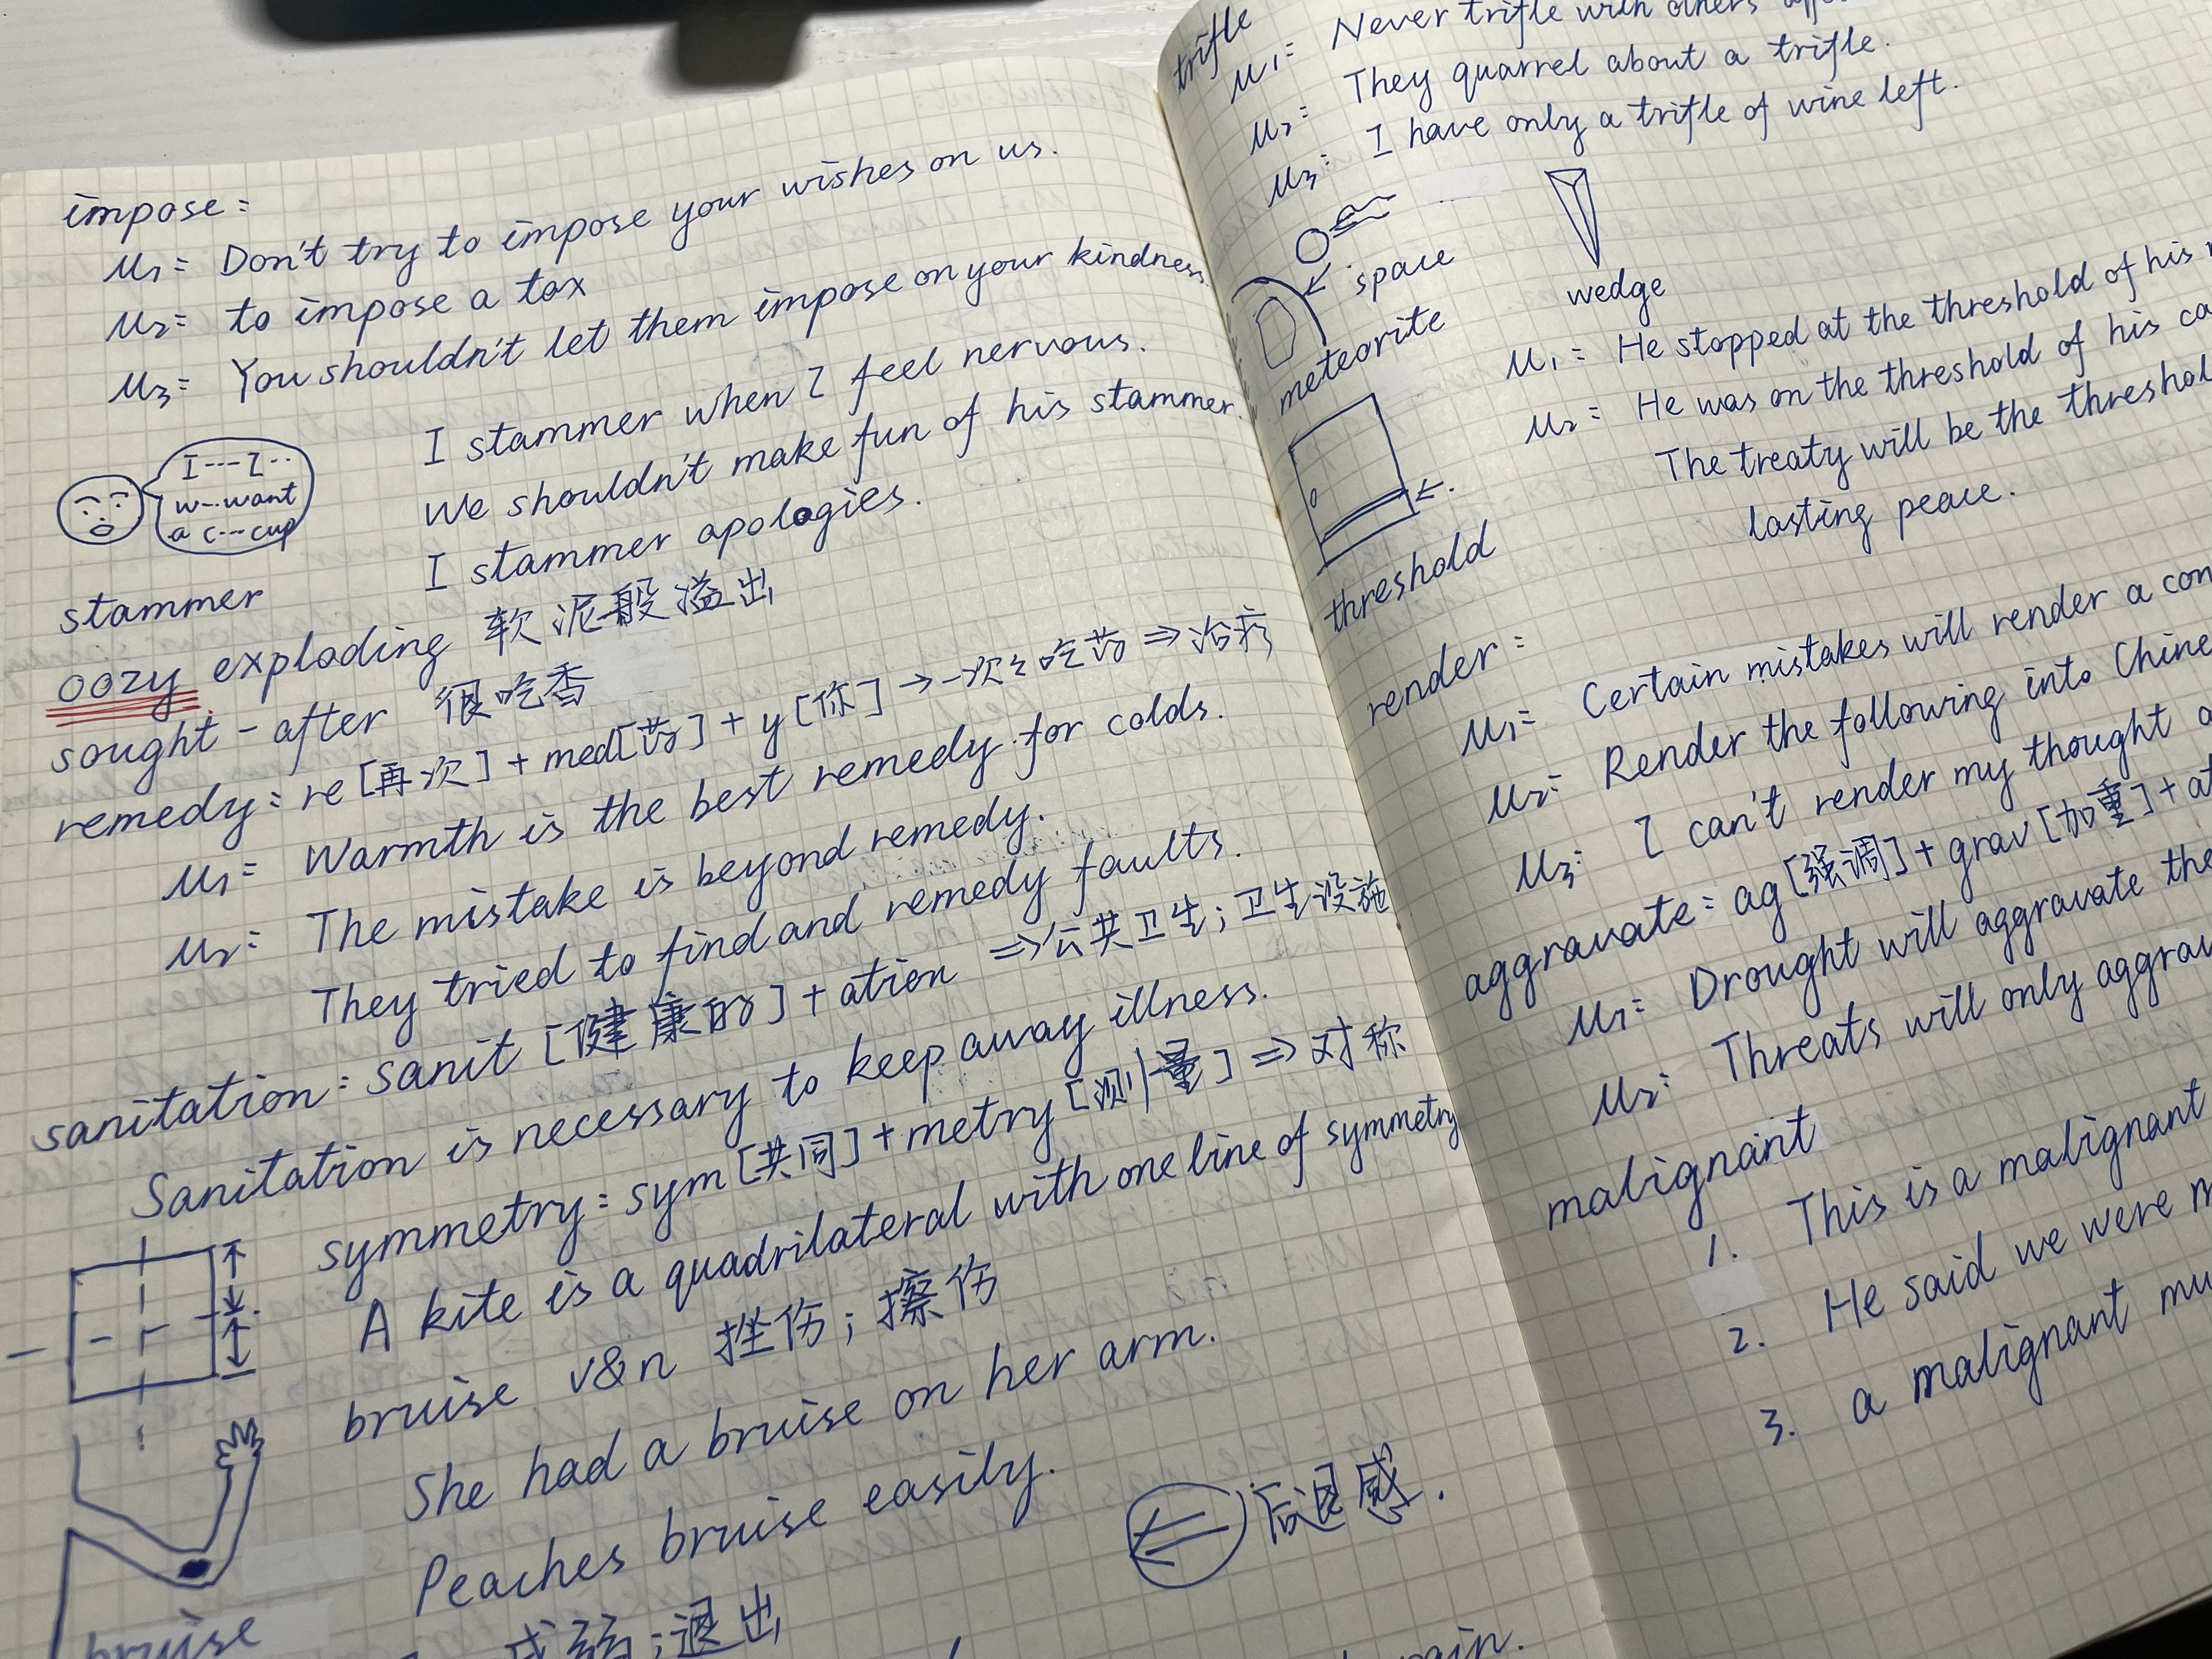 impose:
M1: Don't try to impose your wishes on us.
M2: to impose a tax
M3: You shouldn't let them impose on your kindness
I---I--
w--want
a c---cup
stammer
I stammer when I feel nervous.
We shouldn't make fun of his stammer.
I stammer apologies.
oozy exploding 软泥般溢出
sought-after 很吃香
remedy: re[再次]+med[药]+y[你]→一次次吃药⇒治疗
M1: Warmth is the best remedy for colds.
M2: The mistake is beyond remedy.
They tried to find and remedy faults.
sanitation: sanit[健康的]+ation ⇒公共卫生;卫生设施
Sanitation is necessary to keep away illness.
symmetry: sym[共同]+metry[测量]⇒对称
A kite is a quadrilateral with one line of symmetry
bruise v&n 挫伤;擦伤
She had a bruise on her arm.
Peaches bruise easily.
bruise
后退感.
退出
trifle
M1: Never trifle with others'
M2: They quarrel about a trifle.
M3: I have only a trifle of wine left.
space
meteorite
wedge
threshold
M1: He stopped at the threshold of his
M2: He was on the threshold of his
The treaty will be the
lasting peace.
render:
M1: Certain mistakes will render a
M2: Render the following into
M3: I can't render my thought
aggravate: ag[强调]+grav[加重]+
M1: Drought will aggravate
M2: Threats will only
malignant
1. This is a malignant
2. He said we were
3. a malignant